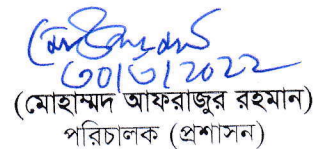 ৩০/৩/2022
(মোহাম্মদ আফরাজুর রহমান)
পরিচালক (প্রশাসন)